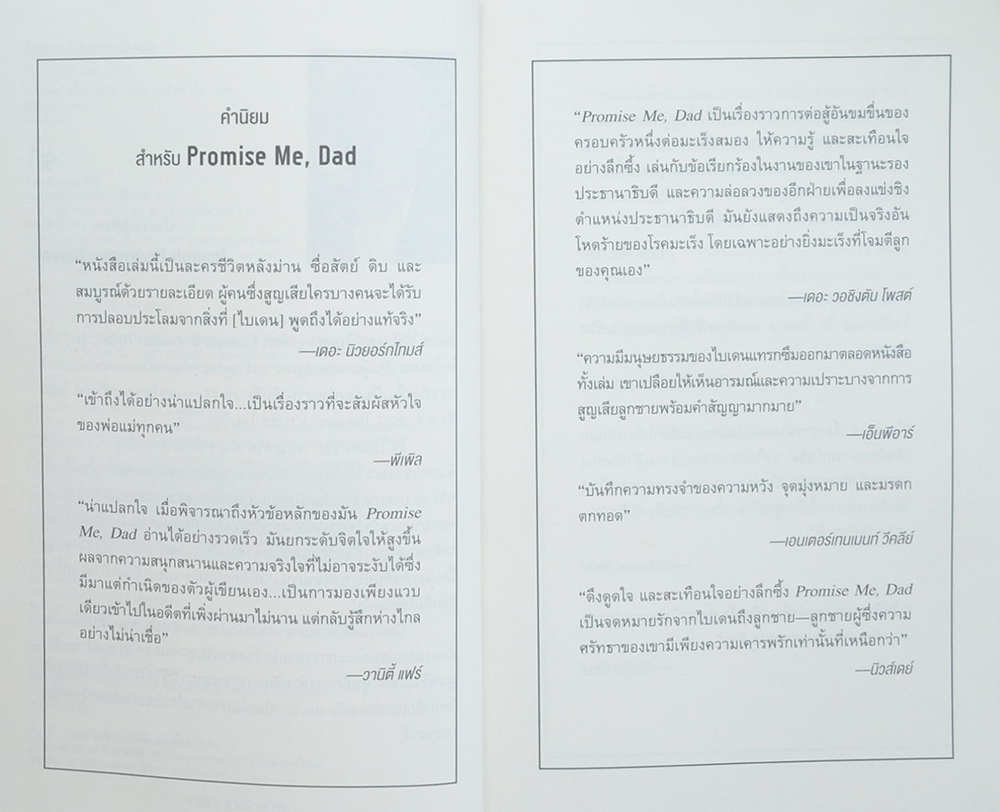 คำนิยม
สำหรับ Promise Me, Dad
“หนังสือเล่มนี้เป็นละครชีวิตหลังม่าน ซื่อสัตย์ ดิบ และ
สมบูรณ์ด้วยรายละเอียด ผู้คนซึ่งสูญเสียใครบางคนจะได้รับ
การปลอบประโลมจากสิ่งที่ [ไบเดน] พูดถึงได้อย่างแท้จริง”
—เดอะ นิวยอร์กไทมส์
“เข้าถึงได้อย่างน่าแปลกใจ...เป็นเรื่องราวที่จะสัมผัสหัวใจ
ของพ่อแม่ทุกคน”
—พีเพิล
“น่าแปลกใจ เมื่อพิจารณาถึงหัวข้อหลักของมัน Promise
Me, Dad อ่านได้อย่างรวดเร็ว มันยกระดับจิตใจให้สูงขึ้น
ผลจากความสนุกสนานและความจริงใจที่ไม่อาจระงับได้ซึ่ง
มีมาแต่กำเนิดของตัวผู้เขียนเอง...เป็นการมองเพียงแวบ
เดียวเข้าไปในอดีตที่เพิ่งผ่านมาไม่นาน แต่กลับรู้สึกห่างไกล
อย่างไม่น่าเชื่อ”
—วานิตี้ แฟร์
“Promise Me, Dad เป็นเรื่องราวการต่อสู้อันขมขื่นของ
ครอบครัวหนึ่งต่อมะเร็งสมอง ให้ความรู้ และสะเทือนใจ
อย่างลึกซึ้ง เล่นกับข้อเรียกร้องในงานของเขาในฐานะรอง
ประธานาธิบดี และความล่อลวงของอีกฝ่ายเพื่อลงแข่งชิง
ตำแหน่งประธานาธิบดี มันยังแสดงถึงความเป็นจริงอัน
โหดร้ายของโรคมะเร็ง โดยเฉพาะอย่างยิ่งมะเร็งที่โจมตีลูก
ของคุณเอง”
—เดอะ วอชิงตัน โพสต์
“ความมีมนุษยธรรมของไบเดนแทรกซึมออกมาตลอดหนังสือ
ทั้งเล่ม เขาเปลือยให้เห็นอารมณ์และความเปราะบางจากการ
สูญเสียลูกชายพร้อมคำสัญญามากมาย”
—เอ็นพีอาร์
“บันทึกความทรงจำของความหวัง จุดมุ่งหมาย และมรดก
ตกทอด”
—เอนเตอร์เทนเมนท์ วีคลีย์
“ดึงดูดใจ และสะเทือนใจอย่างลึกซึ้ง Promise Me, Dad
เป็นจดหมายรักจากไบเดนถึงลูกชาย—ลูกชายผู้ซึ่งความ
ศรัทธาของเขามีเพียงความเคารพรักเท่านั้นที่เหนือกว่า”
—นิวส์เดย์